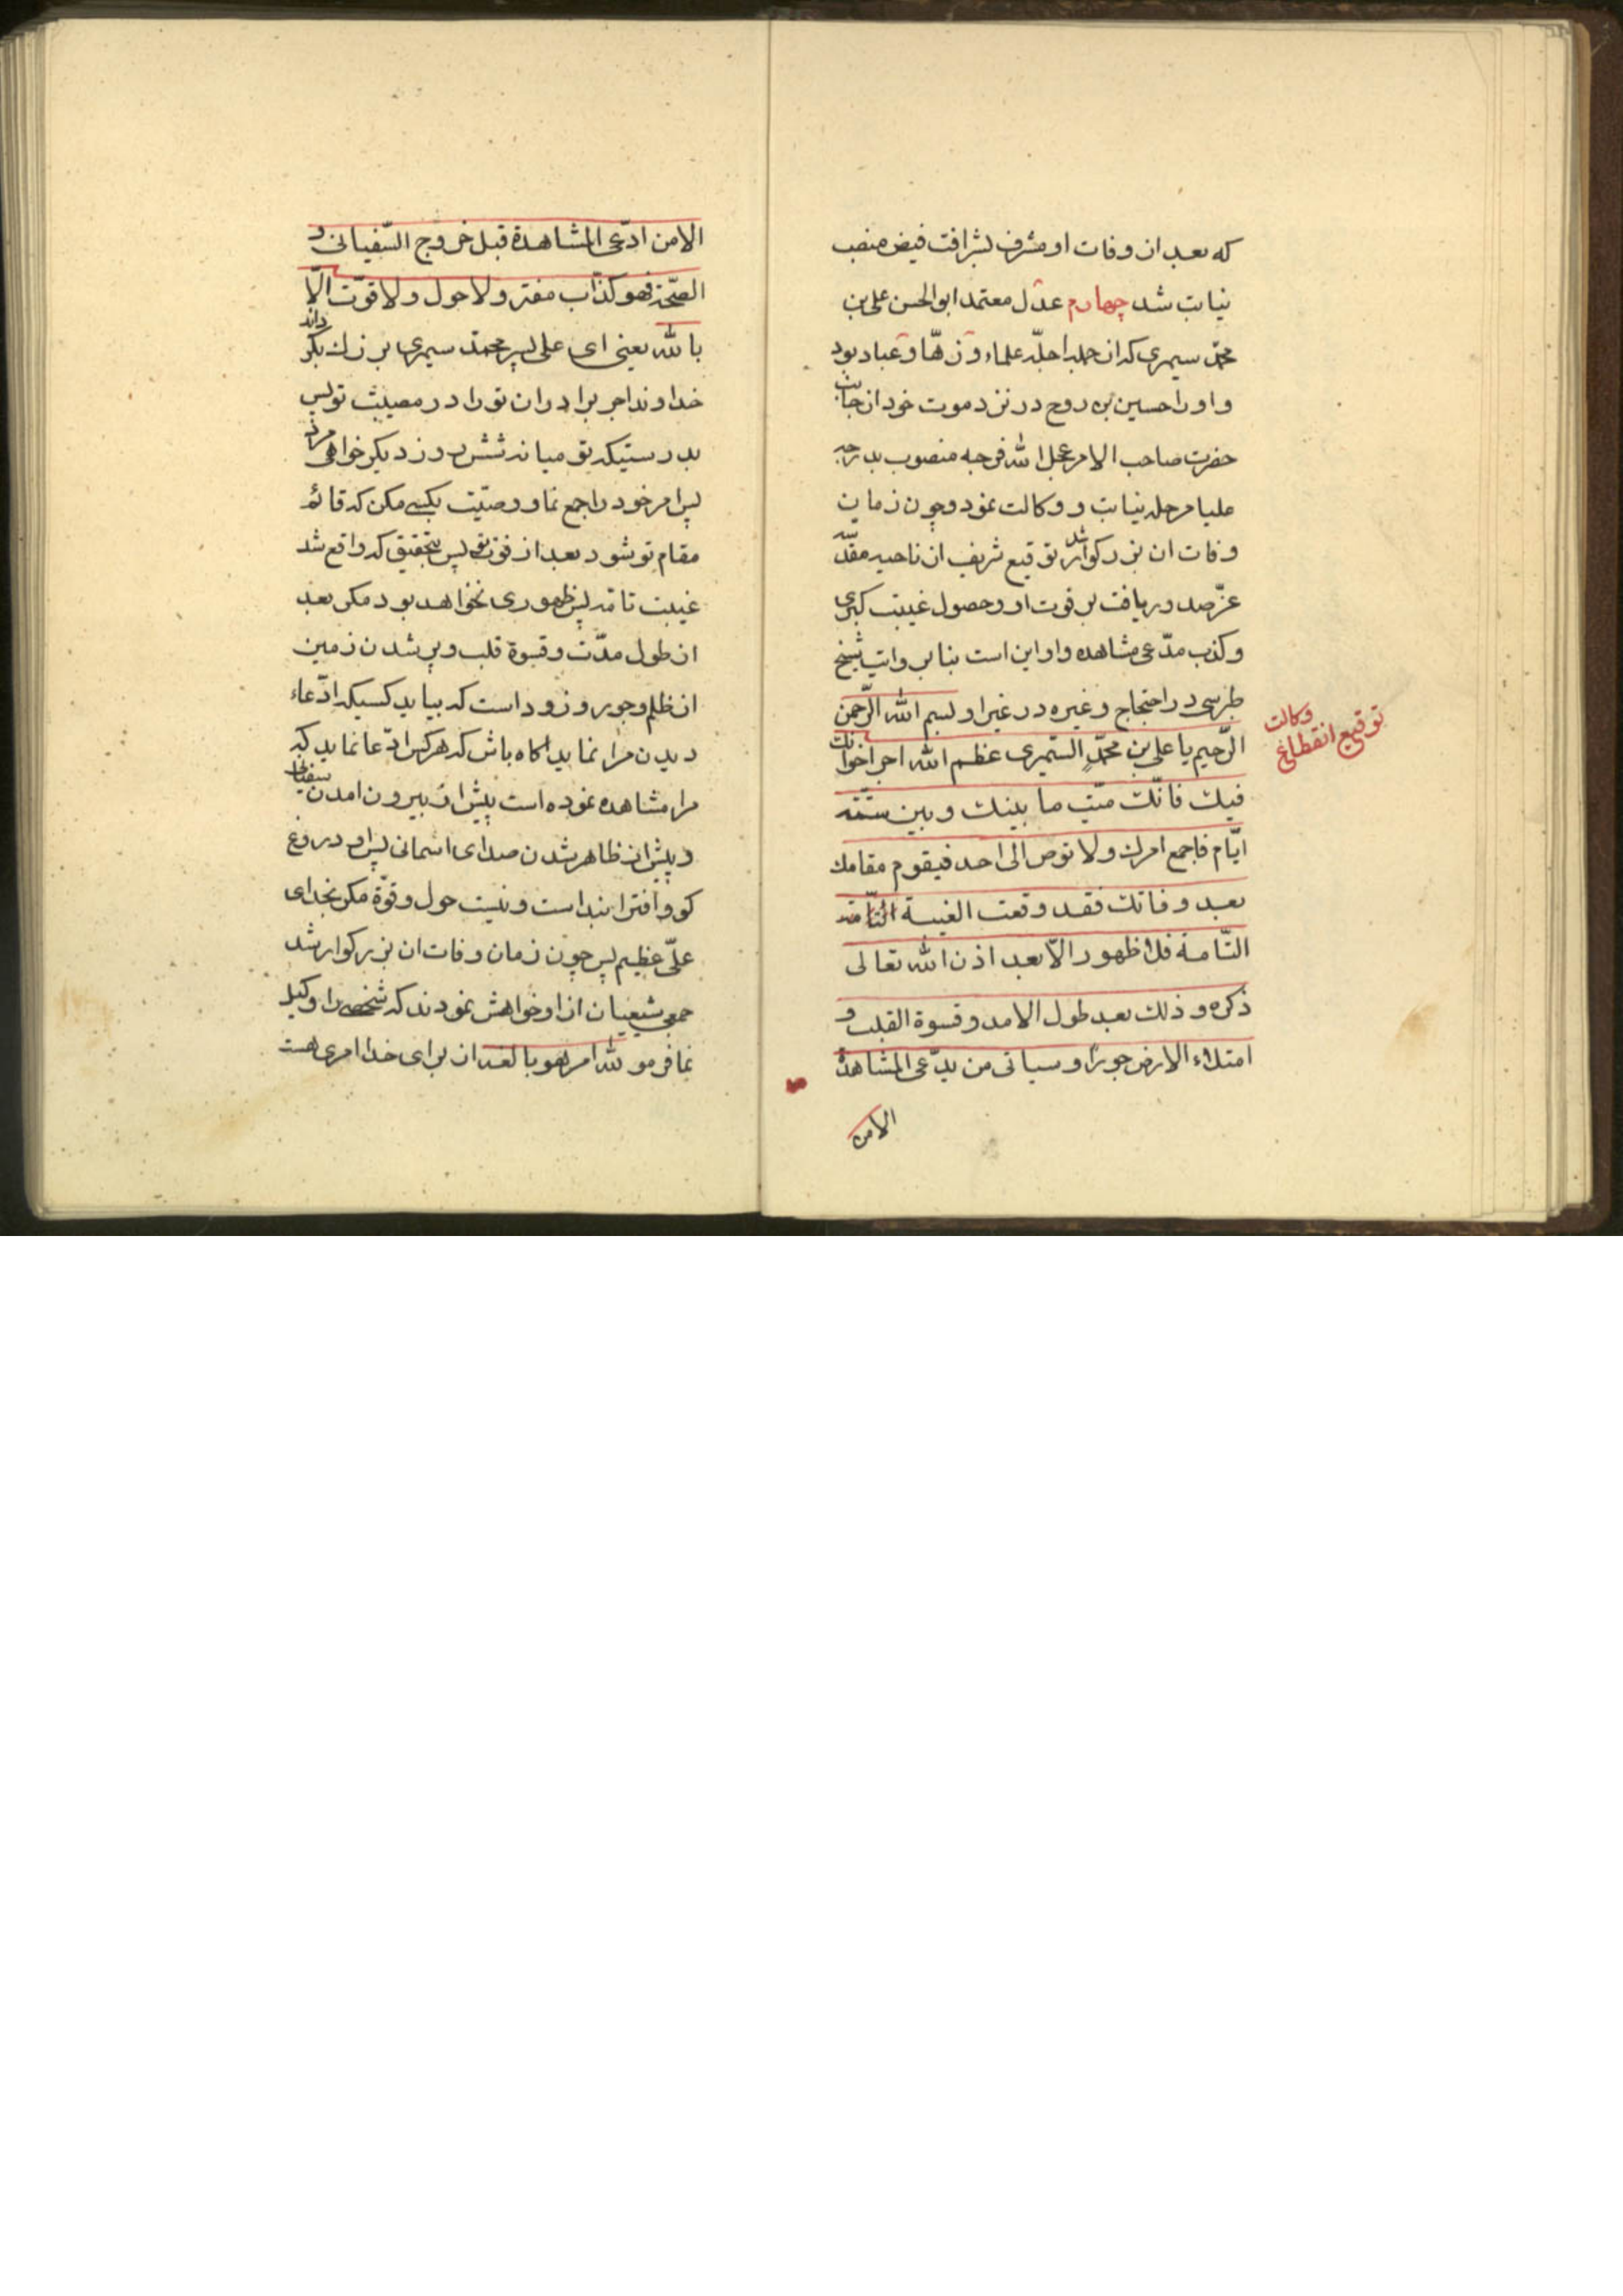 که بعد از وفات او مشرف بشرافت فیض منصب
نیابت شد چهارم عدل معتمد ابو الحسن علی بن
محمد سیمری که از جمله اجلّه علماء و زهّاد و عباد بود
و او را حسین بن روح در نزد موت خود از جانب
حضرت صاحب الامر عجل الله فرجه منصوب بدرجه
علیا مرحله نیابت و وکالت نمود و چون زمان
وفات ان بزرکوار شد توقیع شریف از ناحیه مقدّسه
عزّ صدور یافت بر فوت او و حصول غیبت کبری
و کذب مدّعی مشاهده و او این است بنابر روایت شیخ
طبرسی در احتجاج و غیره در غیر او بسم الله الرّحمن
الرّحیم یا علی بن محمّدٍ السّیمری عظم الله اجر اخوانك
فیك فانّك میّت ما بینك و بین ستّته
ایّام فاجمع امرك ولا توص الی احد فیقوم مقامك
بعد وفاتك فقد وقعت الغیبة التّامّه
التّامة فلا ظهور الّا بعد اذن الله تعالی
ذکره و ذلك بعد طول الامد و قسوة القلب و
امتلاء الارض جورًا و سیاتی من یدّعی المشاهدة
الامن
توقیع انقطاع
وکالت
الامن ادّعی المشاهدة قبل خروج السّفیانی و
الصّیحة فهو کذّاب مفتر و لا حول و لا قوّت الّا
بالله یعنی ای علی پسر محمد سیمری بزرك بکرداند
خداوند اجر برادران تو را در مصیبت تو پس
بدرستیکه تو میانه شش روز دیکر خواهی مرد
پس امر خود را جمع نما و وصیّت بکسی مکن که قائم
مقام تو شود بعد از فوت تو پس بتحقیق که واقع شد
غیبت تامّه پس ظهوری نخواهد بود مکر بعد
از طول مدّت و قسوة قلب و پر شدن زمین
از ظلم و جور و زود است که بیاید کسیکه ادّعاء
دیدن مرا نماید اکاه باش که هرکس ادّعا نماید که
مرا مشاهده نموده است پیش از بیرون امدن سفیانی
و پیش از ظاهر شدن صدای اسمانی پس او دروغ
کو و افترا بند است و نیست حول و قوّة مکر بخدای
علیّ عظیم پس چون زمان وفات ان بزرکوار شد
جمعی شیعیان از او خواهش نمودند که شخصی را وکیل
نما فرمود لله امر هو بالغه ان برای خدا امری هست